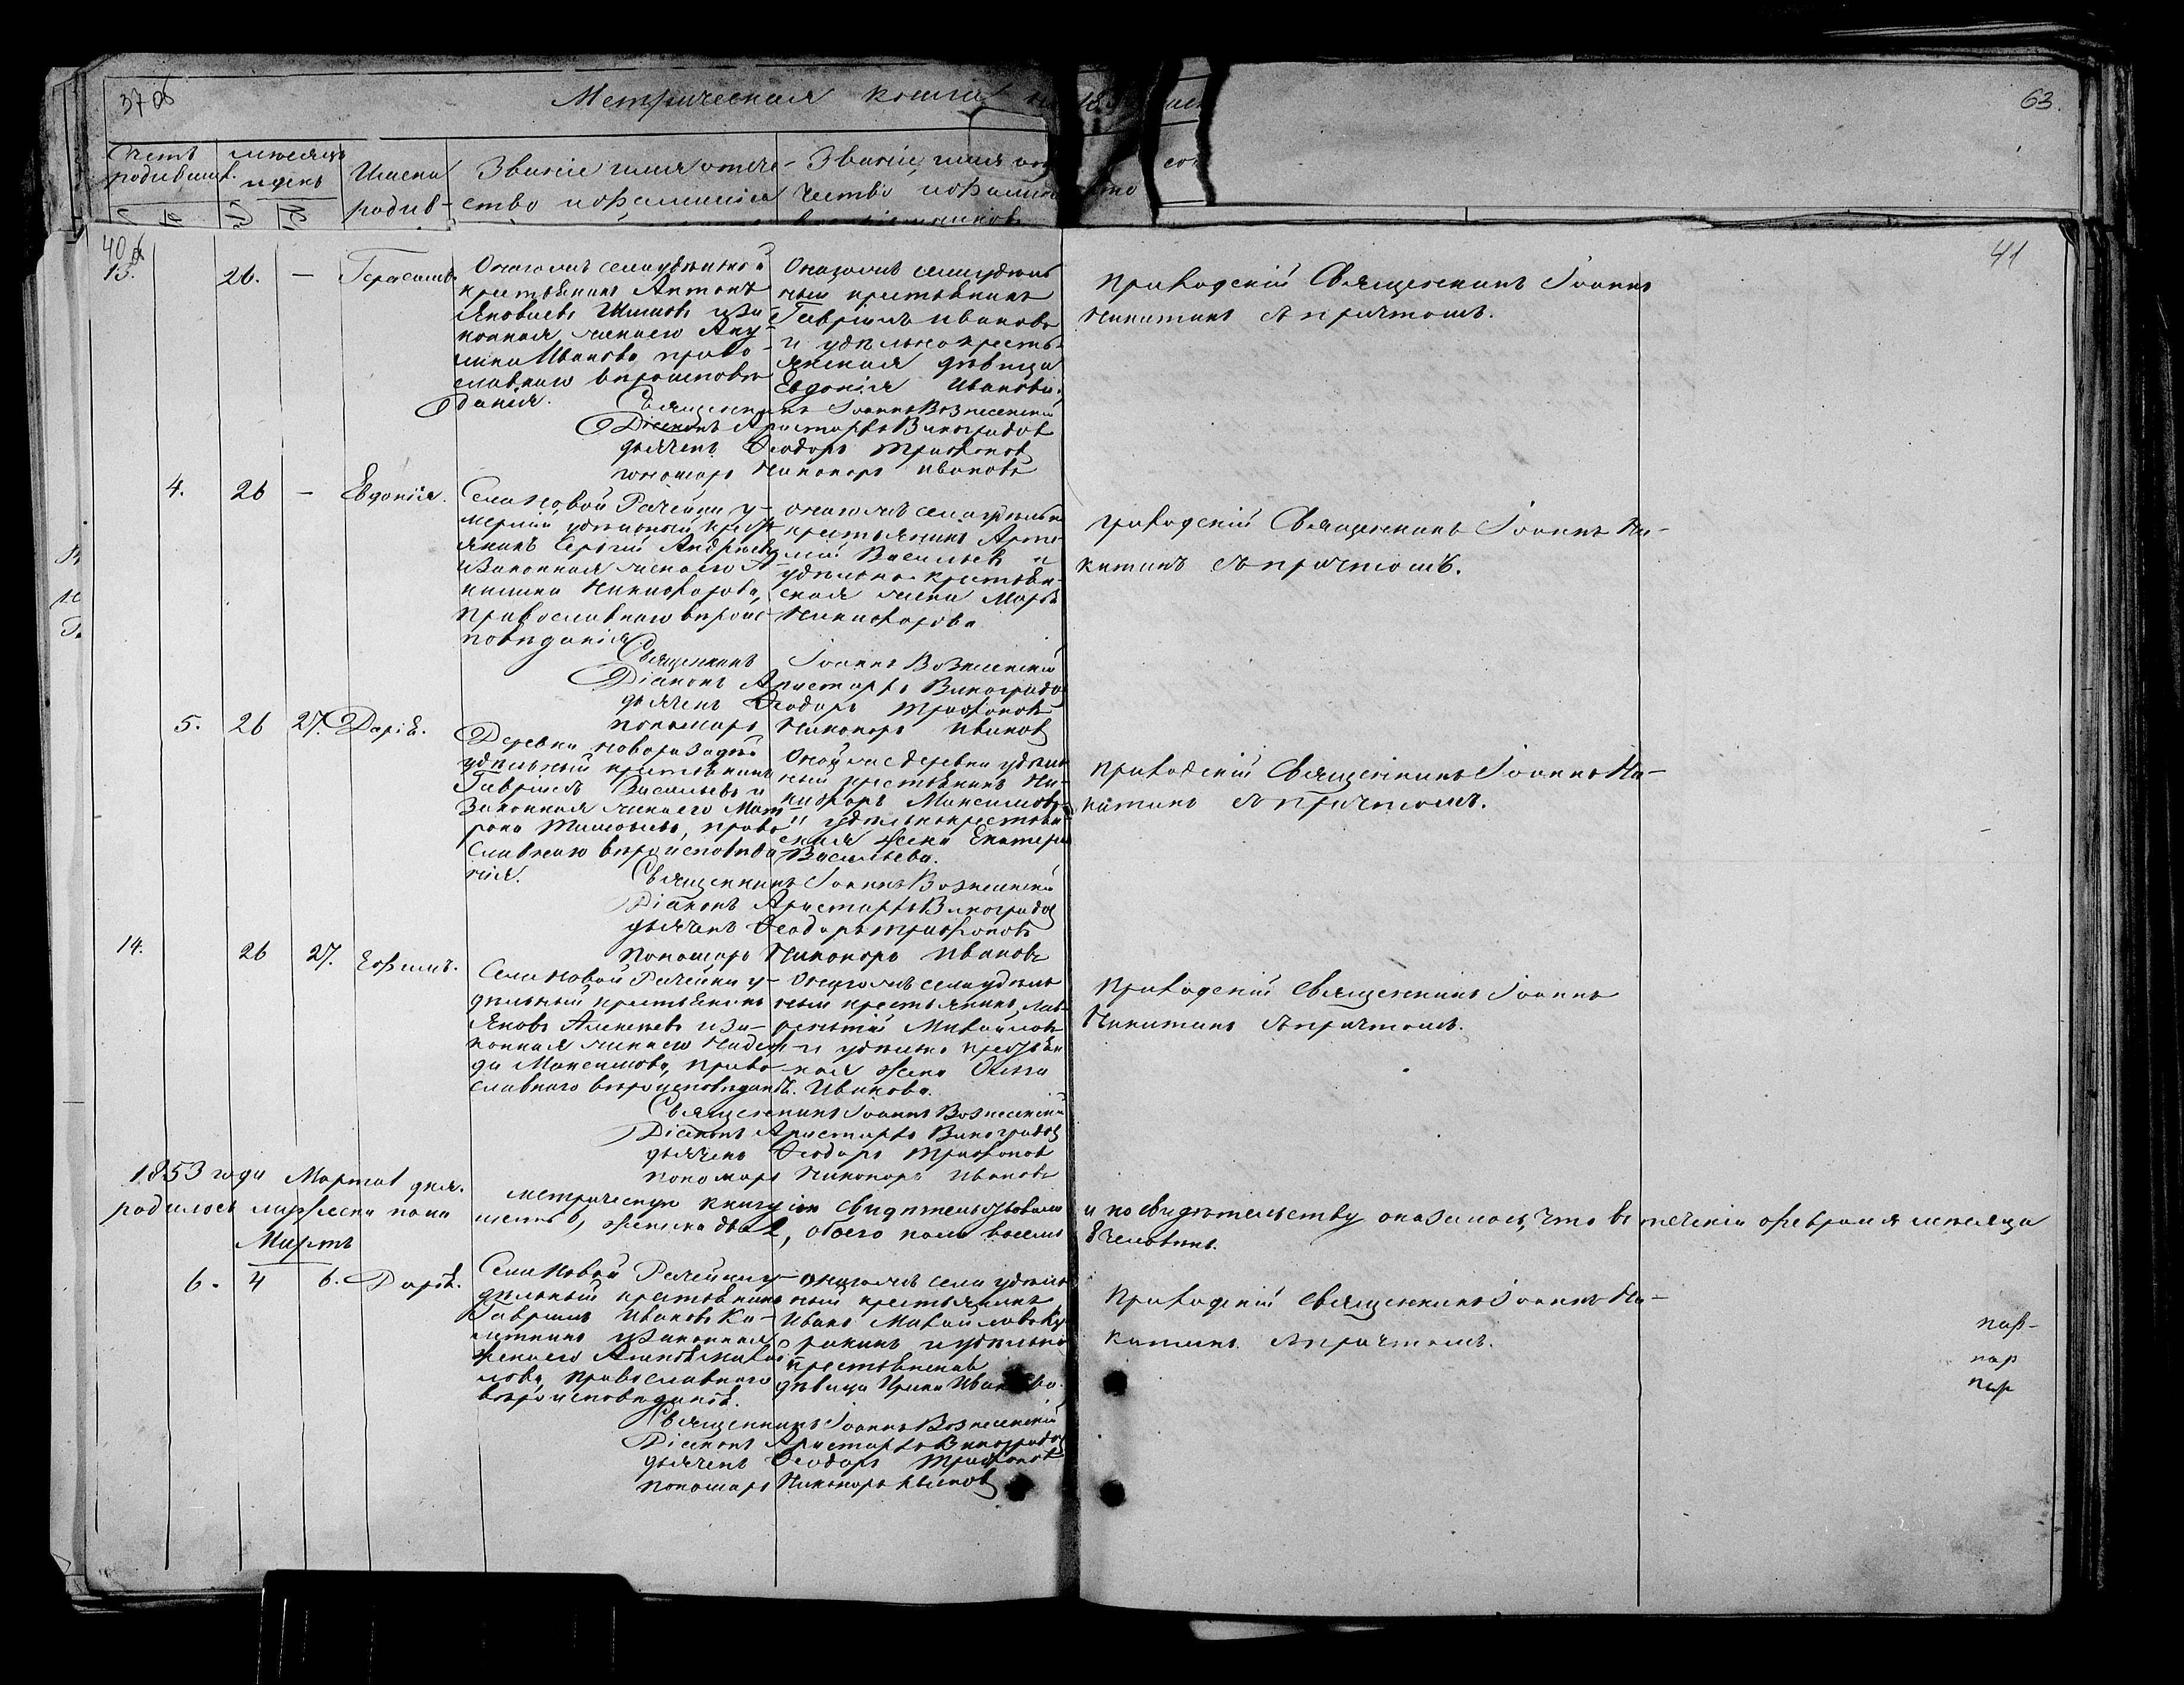 37 об
Метрическая книга на 185
63.
Счетъ родивших.
месяцъ и день
Имена родив-
Званіе имя отче-
ство и фамилія
Званіе, имя
чество и фамилія
40 об
41
13.
26.
—
Герасимъ.
Онагожъ села удѣльной
крестьянинъ Антонъ
Яковлевъ и за-
конная жена его Аку-
лина Иванова, право-
славнаго вѣроисповѣ-
данія.
Онагожъ села удѣль
ный крестьянинъ
Гавріилъ Ивановъ
и удѣльнокресть-
янская дѣвица
Евдокія Иванова.
Приходскій Священникъ Іоаннъ
Никитинъ съ причтомъ.
Священникъ Іоаннъ Вознесенскій
Діаконъ Аристархъ Виноградовъ
дьячекъ Ѳеодоръ Трифоновъ
пономарь Никаноръ Ивановъ
4.
26
—
Евдокія.
Села Новой Рачейки у-
мершій удѣльный кресть-
янинъ Сергій Андреевъ
и законная жена его А-
килина Никифорова,
православнаго вѣроис-
повѣданія.
онагожъ села удѣльн
крестьянинъ Арте-
мій Васильевъ и
удѣльно-крестьян-
ская жена Марѳа
Никифорова
приходскій Священникъ Іоаннъ Ни-
китинъ съ причтомъ.
Священникъ Іоаннъ Вознесенскій
Діаконъ Аристархъ Виноградов
дьячекъ Ѳеодоръ Трифоновъ
пономарь Никаноръ Иванов
5.
26
27.
Дарія.
Деревни
удѣльный крестьянинъ
Гавріилъ Васильевъ и
законная жена его Мат
рона Тимофеева, право
славнаго вѣроисповѣда
нія.
Онойже деревни удѣль
ный крестьянинъ Ни-
кифоръ Максимовъ
и удѣльнокрестьян
ская жена Екатерин
Васильева.
приходскій Священникъ Іоаннъ Ни-
китинъ съ причтомъ.
Священникъ Іоаннъ Вознесенскій
Діаконъ Аристархъ Виноградов
дьячекъ Ѳеодоръ Трифоновъ
пономарь Никаноръ Ивановъ
14.
26
27.
Ефимъ.
Села Новой Рачейки у-
дѣльный крестьянинъ
Яковъ Алексѣевъ и за-
конная жена его Надеж-
да Максимова, право
славнаго вѣроисповѣданія.
Онагожъ села удѣль
ный крестьянинъ Лав-
рентій Михайловъ
и удѣльно крестьян
ская жена
Иванова.
Приходскій Священникъ Іоаннъ
Никитинъ съ причтомъ.
Священникъ Іоаннъ Вознесенскій
Діаконъ Аристархъ Виноградов
дьячекъ Ѳеодоръ Трифонов
пономарь Никаноръ Ивановъ
1853 года Марта дня. метрическую книгу сію свидѣтельствовали и по свидѣтельству оказалось, что въ теченіи февраля месяца
родилось мужеска пола шесть 6, женска два 2, обоего пола восемь 8 человѣкъ.
Мартъ
6.
4
6.
Дарія.
Села Новой Рачейки у-
дѣльный крестьянинъ
Гавріилъ Ивановъ Ка-
и законная
жена его Агаѳія Михай
лова, православнаго
вѣроисповѣданія.
онагожъ села удѣль
ный крестьянинъ
Иванъ Михайловъ
и удѣльно
крестьянская
дѣвица Ирина Иванова.
Приходскій Священникъ Іоаннъ Ни-
китинъ съ причтомъ.
Священникъ Іоаннъ Вознесенскій
Діаконъ Аристархъ Виноградов
дьячекъ Ѳеодоръ Трифоновъ
пономарь Никаноръ Иванов